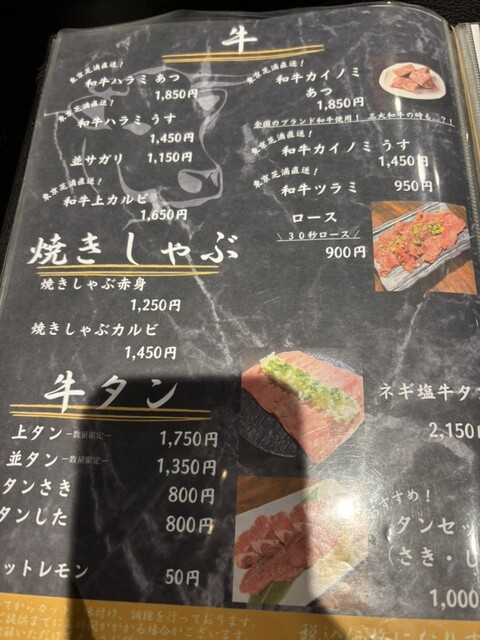 牛
東京芝浦直送！
和牛ハラミ あつ
1,850円
東京芝浦直送！
和牛ハラミ うす
1,450円
並サガリ 1,150円
東京芝浦直送！
和牛上カルビ
1,650円
東京芝浦直送！
和牛カイノミ
あつ
1,850円
全国のブランド和牛使用！ 三大和牛の時も…?!
東京芝浦直送！
和牛カイノミ うす
1,450円
東京芝浦直送！
和牛ツラミ 950円
ロース
＼30秒ロース／
900円
焼きしゃぶ
焼きしゃぶ赤身
1,250円
焼きしゃぶカルビ
1,450円
牛タン
上タン－数量限定－ 1,750円
並タン－数量限定－ 1,350円
タンさき 800円
タンした 800円
ットレモン 50円
ネギ塩牛タ
2,150
すすめ！
タンセッ
（さき・し
1,000